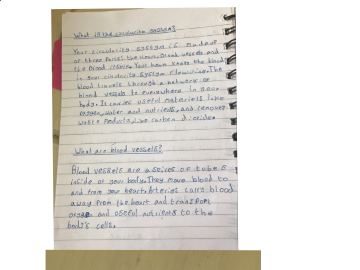 What is the circulatory system?
Your circulatory system is made up
of three parts: the heart, blood vessels and
the blood itself. Your heart keeps the blood
in your circulatory system flowing. The
blood travels through a network of
blood vessels to everywhere in your
body. It carries useful materials like
oxygen, water and nutrients, and removes
waste products like carbon dioxide
What are blood vessels?
Blood vessels are a series of tubes
inside of your body. They move blood to
and from your heart. Arteries carry blood
away from the heart and transport
oxygen and useful nutrients to the
body's cells.